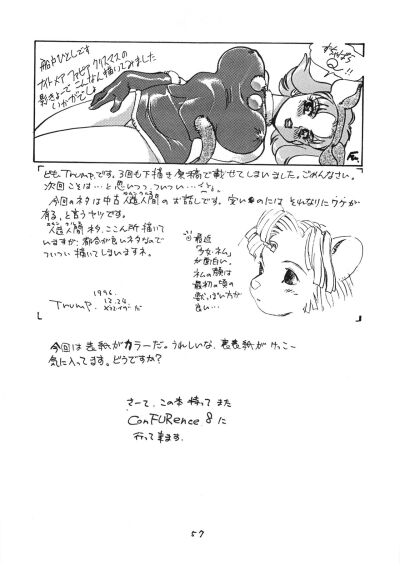 船内ひとしです
ナイトメア フォビア クリスマスの
描いてみました
いかがでしょ
ども Trump. です。3回も下描き原稿で載せてしまいました。ごめんなさい。
次回ことは…と思いつつ、ついつい…
今回のネタは中古人造人間のお話しです。実いものには それなりにワケが
有る。と言うヤツです。
人造人間 ネタ、ここん所描いて
いますが、都合が良いネタなので
ついつい 描いてしまいますネ。
1996.
12.24.
Trump.
クリスマスイヴだ
最近
「少女・ネム」
が面白い。
ネムの顔は
最初の頃の
方が
良い…
今回は表紙がカラーだ。うれしいな、裏表紙がけっこー
気に入ってます。どうですか?
さーて、この本持ってまた
ConFURence 8 に
行って来ます。
57